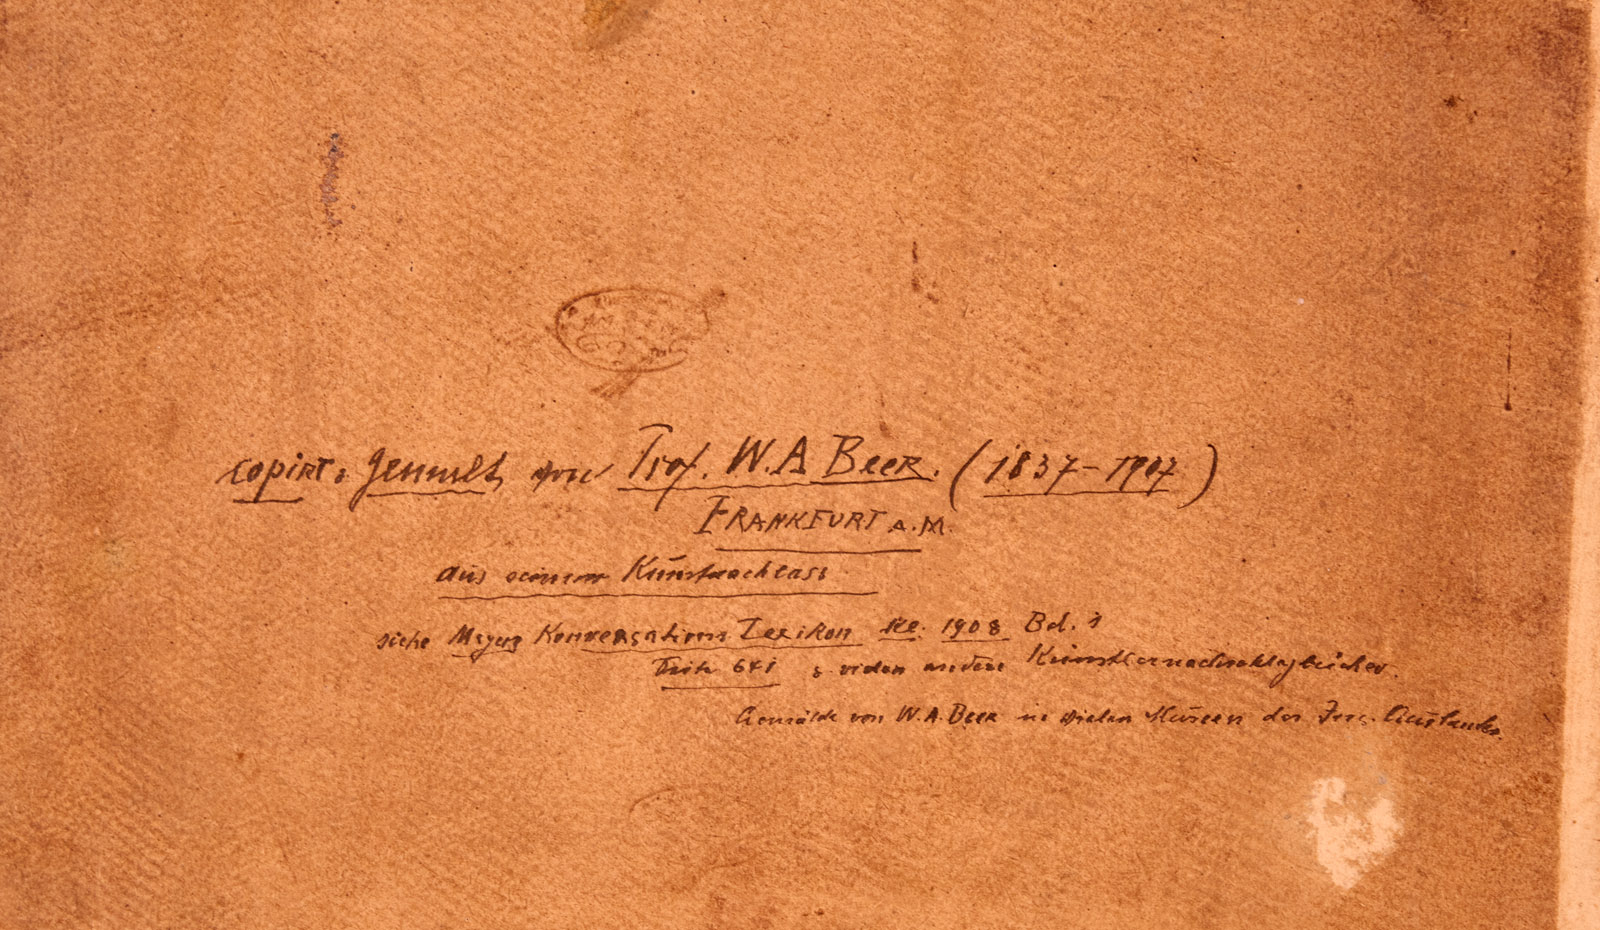 copirt & gemalt von Prof. W. A Beer. (1837-1907)
FRANKFURT A. M.
aus seinem Kunstnachlass
siehe Meyers Konversations Lexikon 1908 Bd.
Seite 641 & vielen andere Künstlernachschlagbücher.
Gemälde von W. A. Beer in vielen Museen des Auslandes.